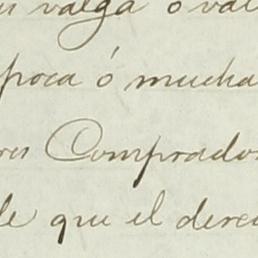 valga ó val
poca ó mucha
res Comprado
de que el derec